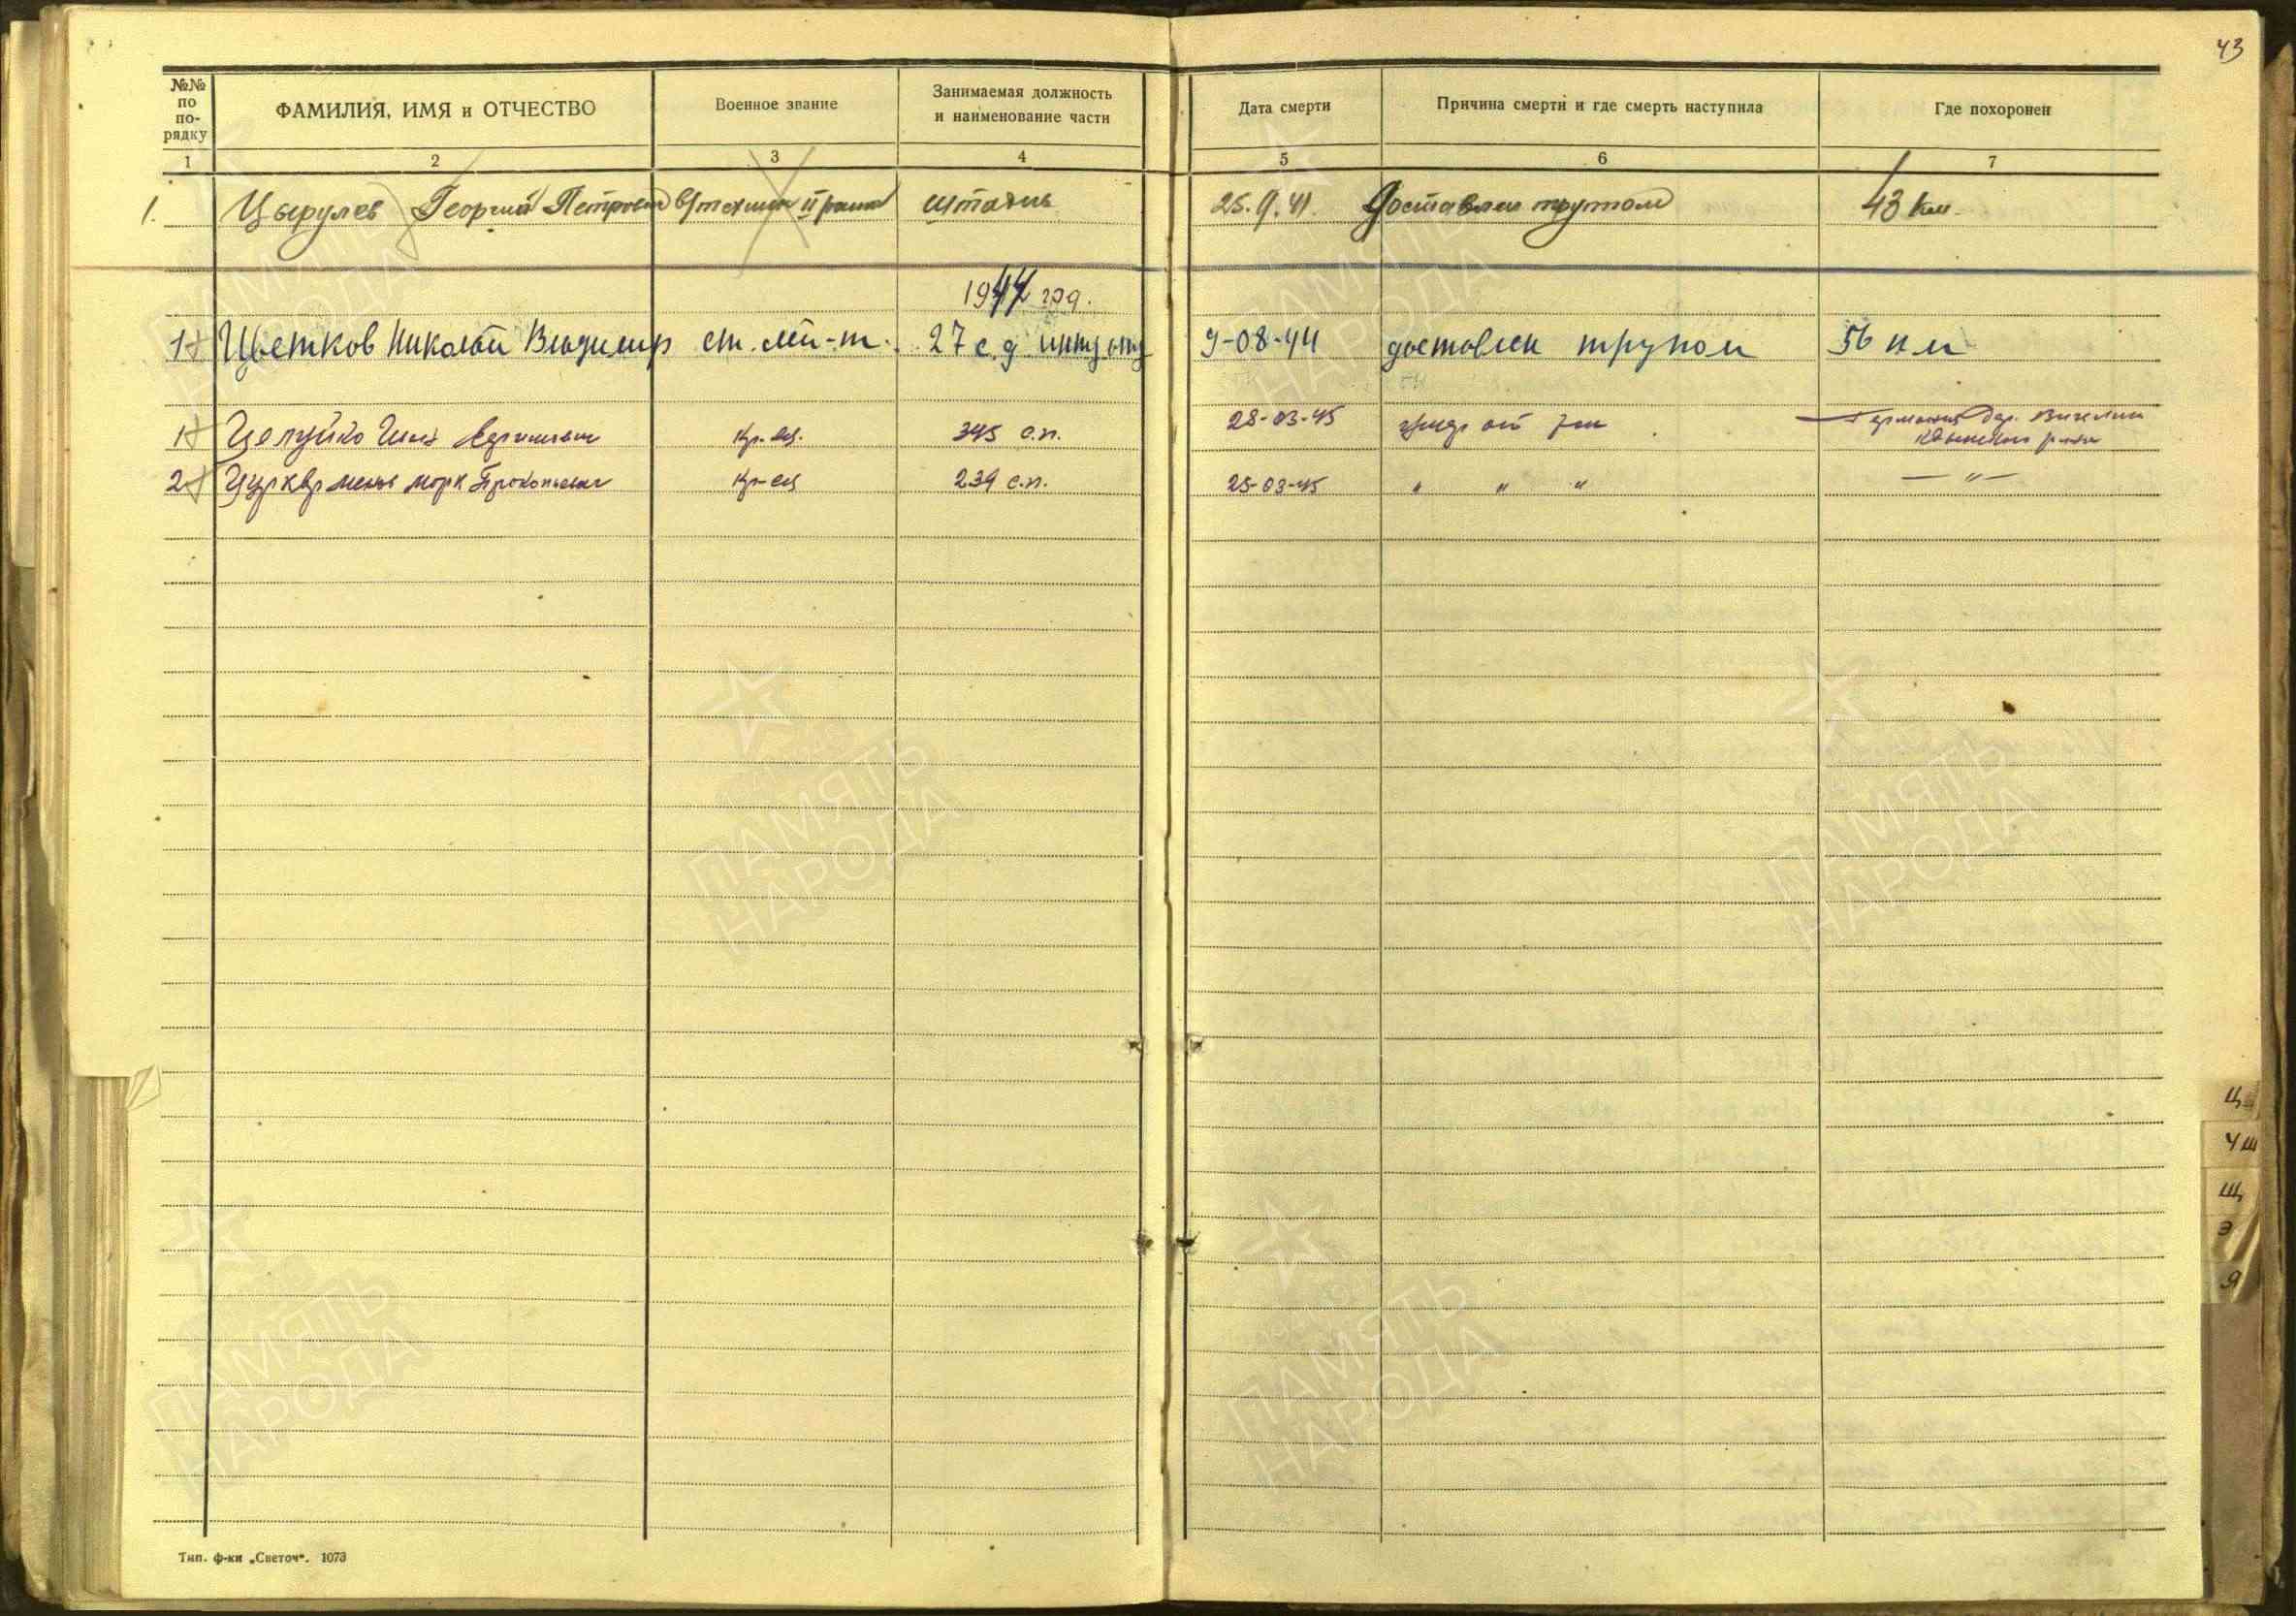 43
№№ по по-рядку
ФАМИЛИЯ, ИМЯ и ОТЧЕСТВО
Военное звание
Занимаемая должность
и наименование части
Дата смерти
Причина смерти и где смерть наступила
Где похоронен
1 2 3 4 5 6 7
1. Цырулев Георгий Петрович в/техник II ранга 25.9.41 Доставлен трупом 43 км.
1944 год.
1 Цветков Николай Владимир ст. лей-т. 27 с.д. 9-08-44 доставлен трупом 56 км
1 Целуйко кр-ец. 345 с.п. 28-03-45 умер от Германия
2 Прокопьевич кр-ец 239 с.п. 25-03-45 " " " — " —
Ц
Ч Ш
Щ
Э
Я
Тип. ф-ки „Светоч“. 1073
ПАМЯТЬ
НАРОДА
ПАМЯТЬ
НАРОДА
ПАМЯТЬ
НАРОДА
ПАМЯТЬ
НАРОДА
ПАМЯТЬ
НАРОДА
ПАМЯТЬ
НАРОДА